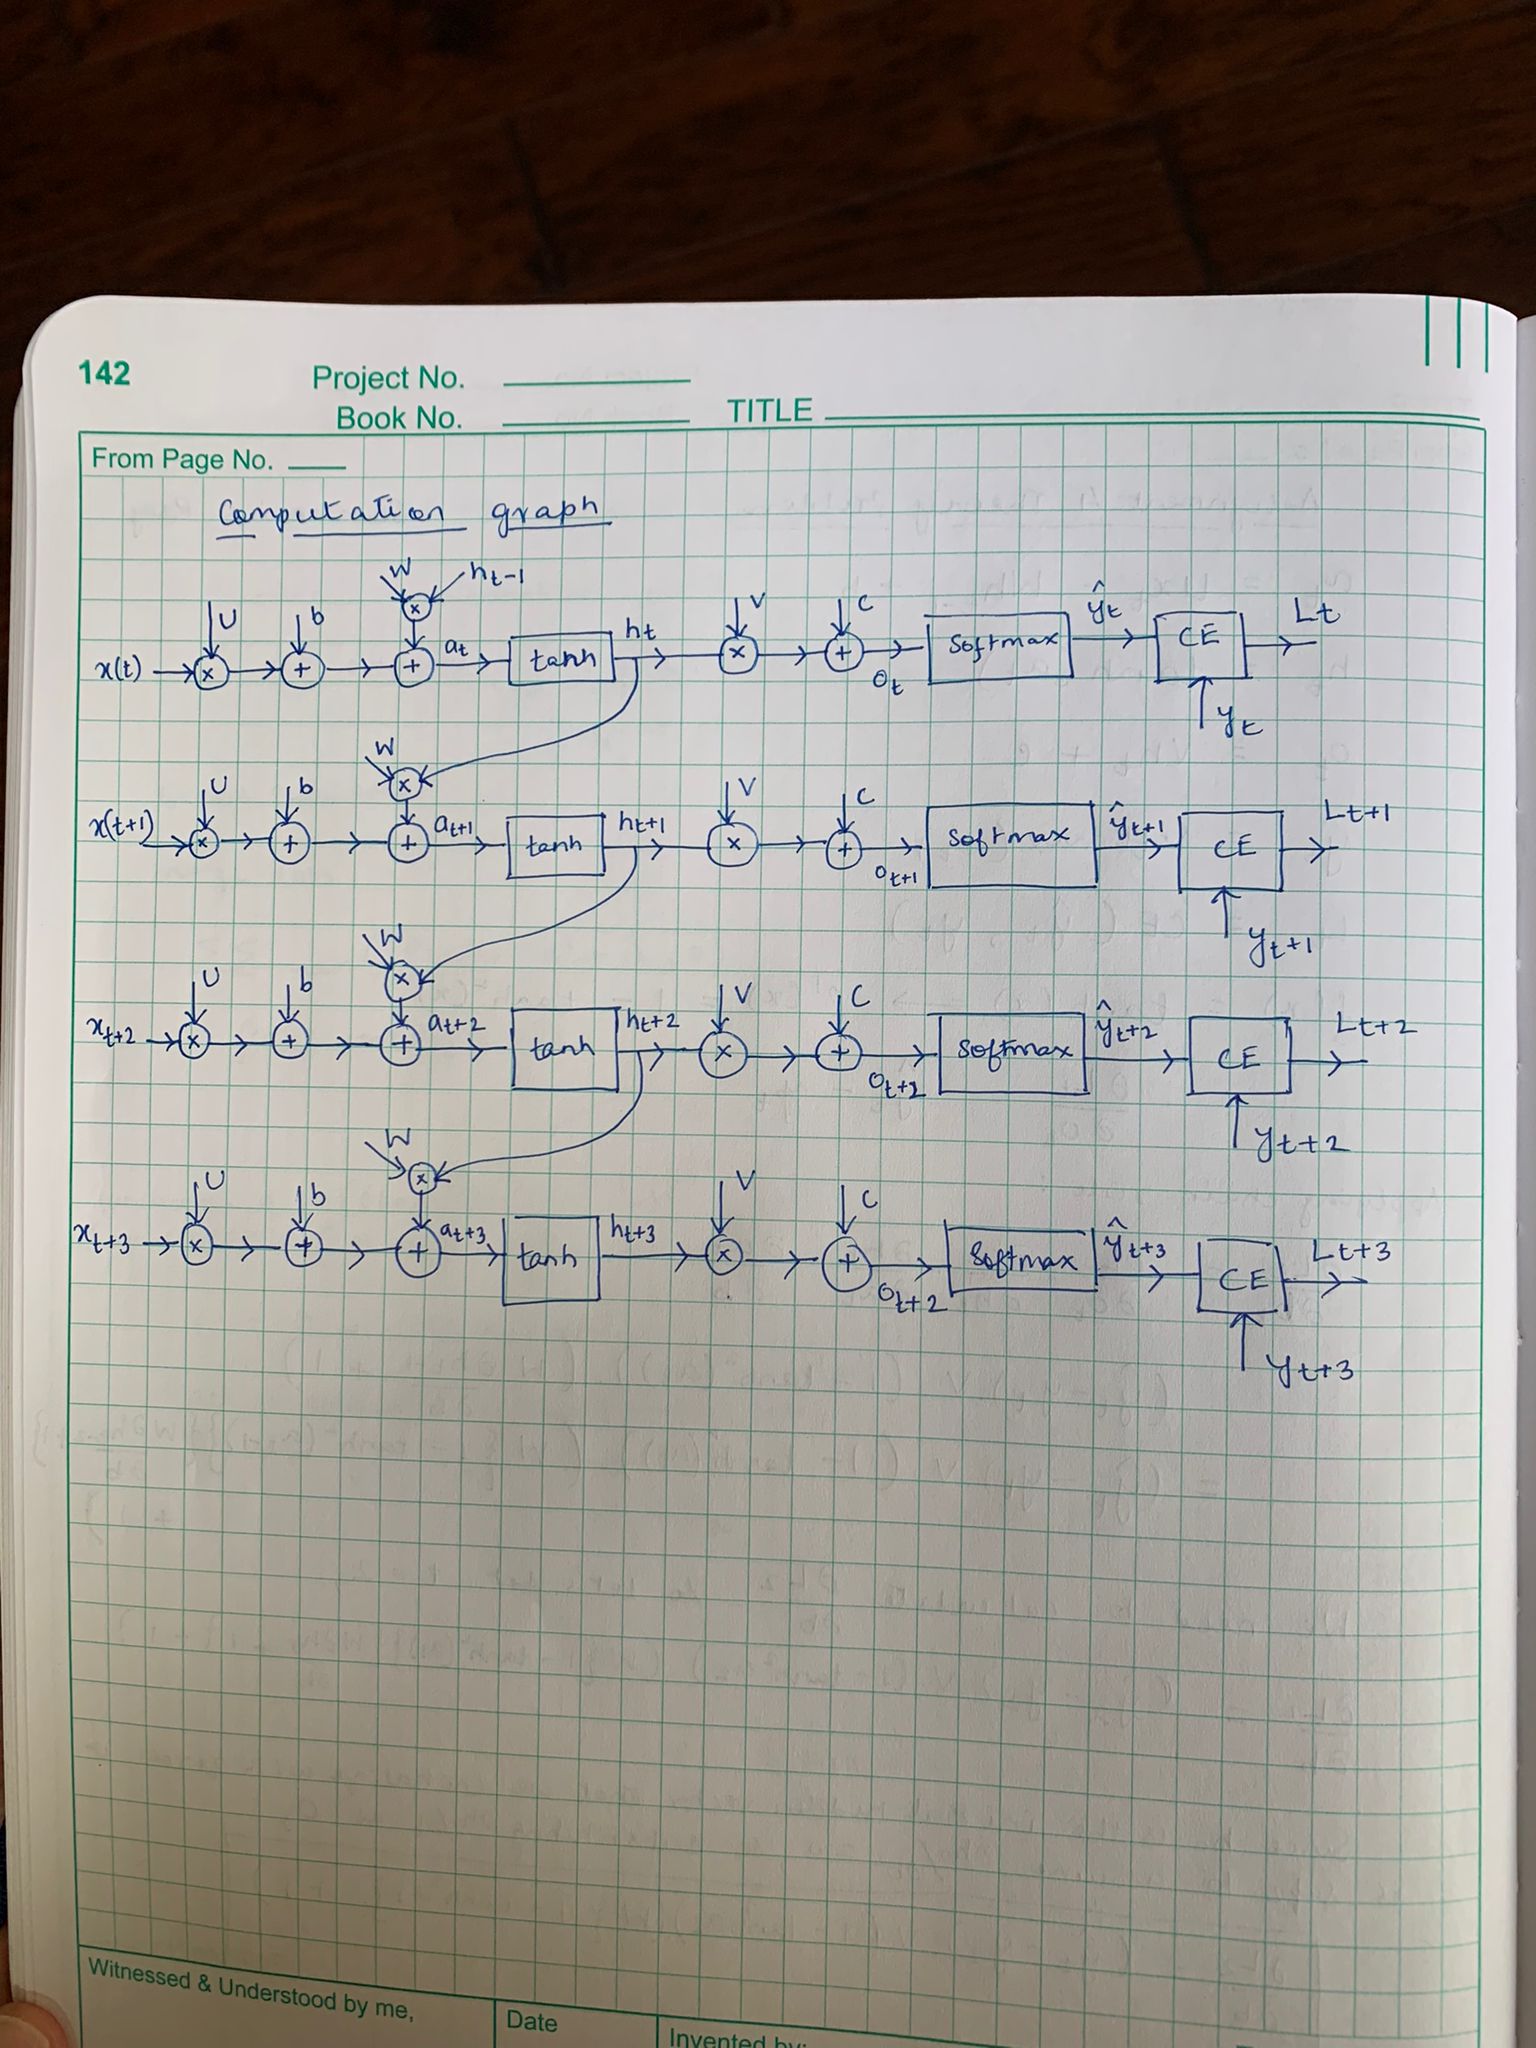 142
Project No.
Book No.
TITLE
From Page No.
Computation graph
W h_{t-1}
U b x
x(t) x + + a_t tanh h_t V x C + o_t Softmax ŷ_t CE L_t
y_t
W
U b x
x(t+1) x + + a_{t+1} tanh h_{t+1} V x C + o_{t+1} Softmax ŷ_{t+1} CE L_{t+1}
y_{t+1}
W
U b x
x_{t+2} x + + a_{t+2} tanh h_{t+2} V x C + o_{t+2} Softmax ŷ_{t+2} CE L_{t+2}
y_{t+2}
W
U b x
x_{t+3} x + + a_{t+3} tanh h_{t+3} V x C + o_{t+2} Softmax ŷ_{t+3} CE L_{t+3}
y_{t+3}
Witnessed & Understood by me,
Date
Invented by: